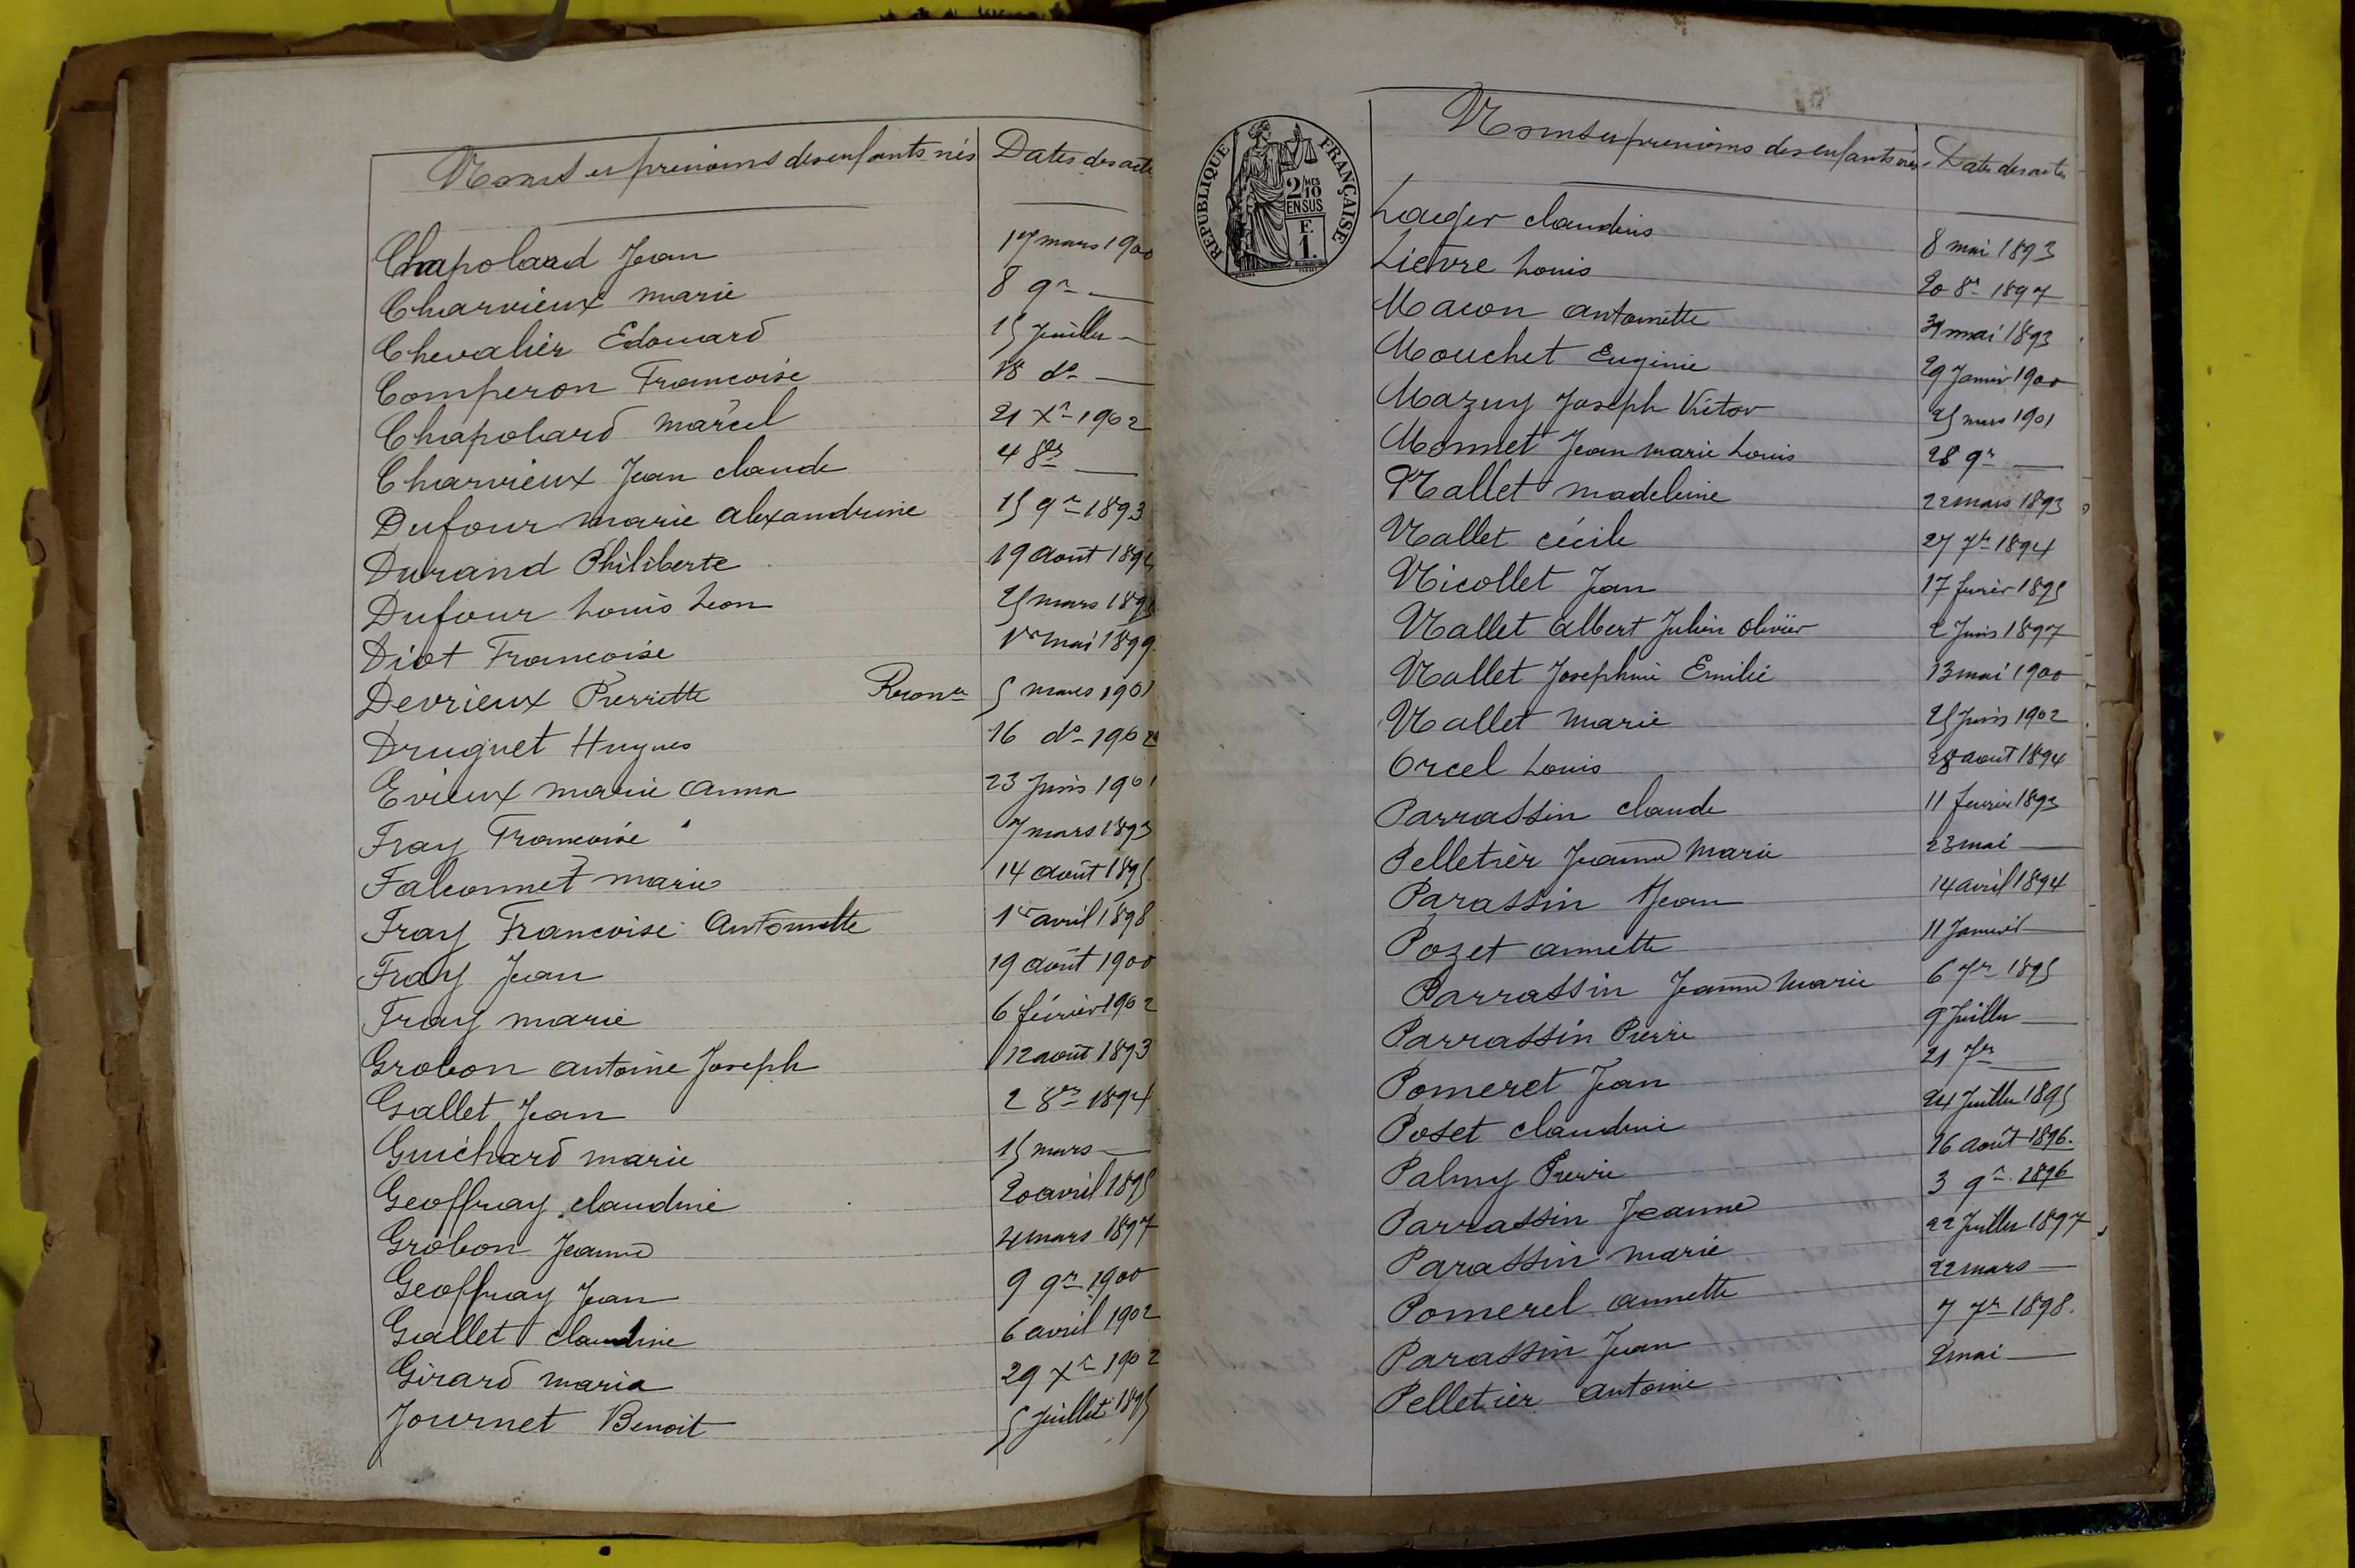 Noms et prenoms des enfants nés Dates des acte
Chapolard Jean 17 mars 1900
Charvieux marie 8 9re —
Chevalier Edouard 15 Juillet —
Comperon Francoise 18 do —
Chapolard marcel 21 Xre 1902
Charvieux Jean claude 4 8re —
Dufour marie alexandrine 15 9re 1893
Durand Philiberte 19 août 1894
Dufour Louis Leon mars
Diot Francoise 1er mai 1899
Devrieux Pierrette Recon 5 mars 1901
Druguet Hugues 16 do 1902
Evieux marie anna 23 Juin 1901
Fray Francoise 7 mars 1893
Falconnet marie 14 août 1895
Fray Francoise Antoinette 1er avril 1898
Fray Jean 19 août 1900
Fray marie 6 février 1902
Grobon antoine Joseph 12 août 1893
Gallet Jean 2 8re 1894
Guichard marie 15 mars —
Geoffray claudine 20 avril 1895
Grobon Jeanne mars 1897
Geoffray Jean 9 9re 1900
Gallet claudine 6 avril 1902
Girard maria 29 Xre 1902
Journet Benoit 5 Juillet 1895
REPUBLIQUE FRANÇAISE
2/10 MES
EN SUS
F.
1.
Noms et prenoms des enfants nés Dates des actes
Lauger claudius 8 mai 1893
Lievre Louis 20 8re 1897
Macon antoinette mai 1893
Mouchet Eugénie 29 Janvier 1900
Mazuy Joseph Victor 25 mars 1901
Monnet Jean marie Louis 28 9re —
Nallet madeleine 22 mars 1893
Nallet cécile 27 7re 1894
Nicollet Jean 17 fevrier 1895
Nallet albert Julien olivier 2 Juin 1897
Nallet Josephine Emilie 13 mai 1900
Nallet marie 25 Juin 1902
Orcel Louis 28 aout 1894
Parrassin claude 11 fevrier 1893
Pelletier Jeanne Marie 23 mai —
Parassin Jean 14 avril 1894
Pozet annette 11 Janvier —
Parrassin Jeanne Marie 6 7re 1895
Parrassin Pierre 9 Juillet —
Pomeret Jean 21 7re —
Poset claudine 24 Juillet 1895
Palmy Pierre 16 août 1896.
Parrassin Jeanne 3 9re 1896
Parassin marie 22 Juillet 1897
Pomerel annette 22 mars —
Parassin Jean 7 7re 1898.
Pelletier antoine 2 mai —